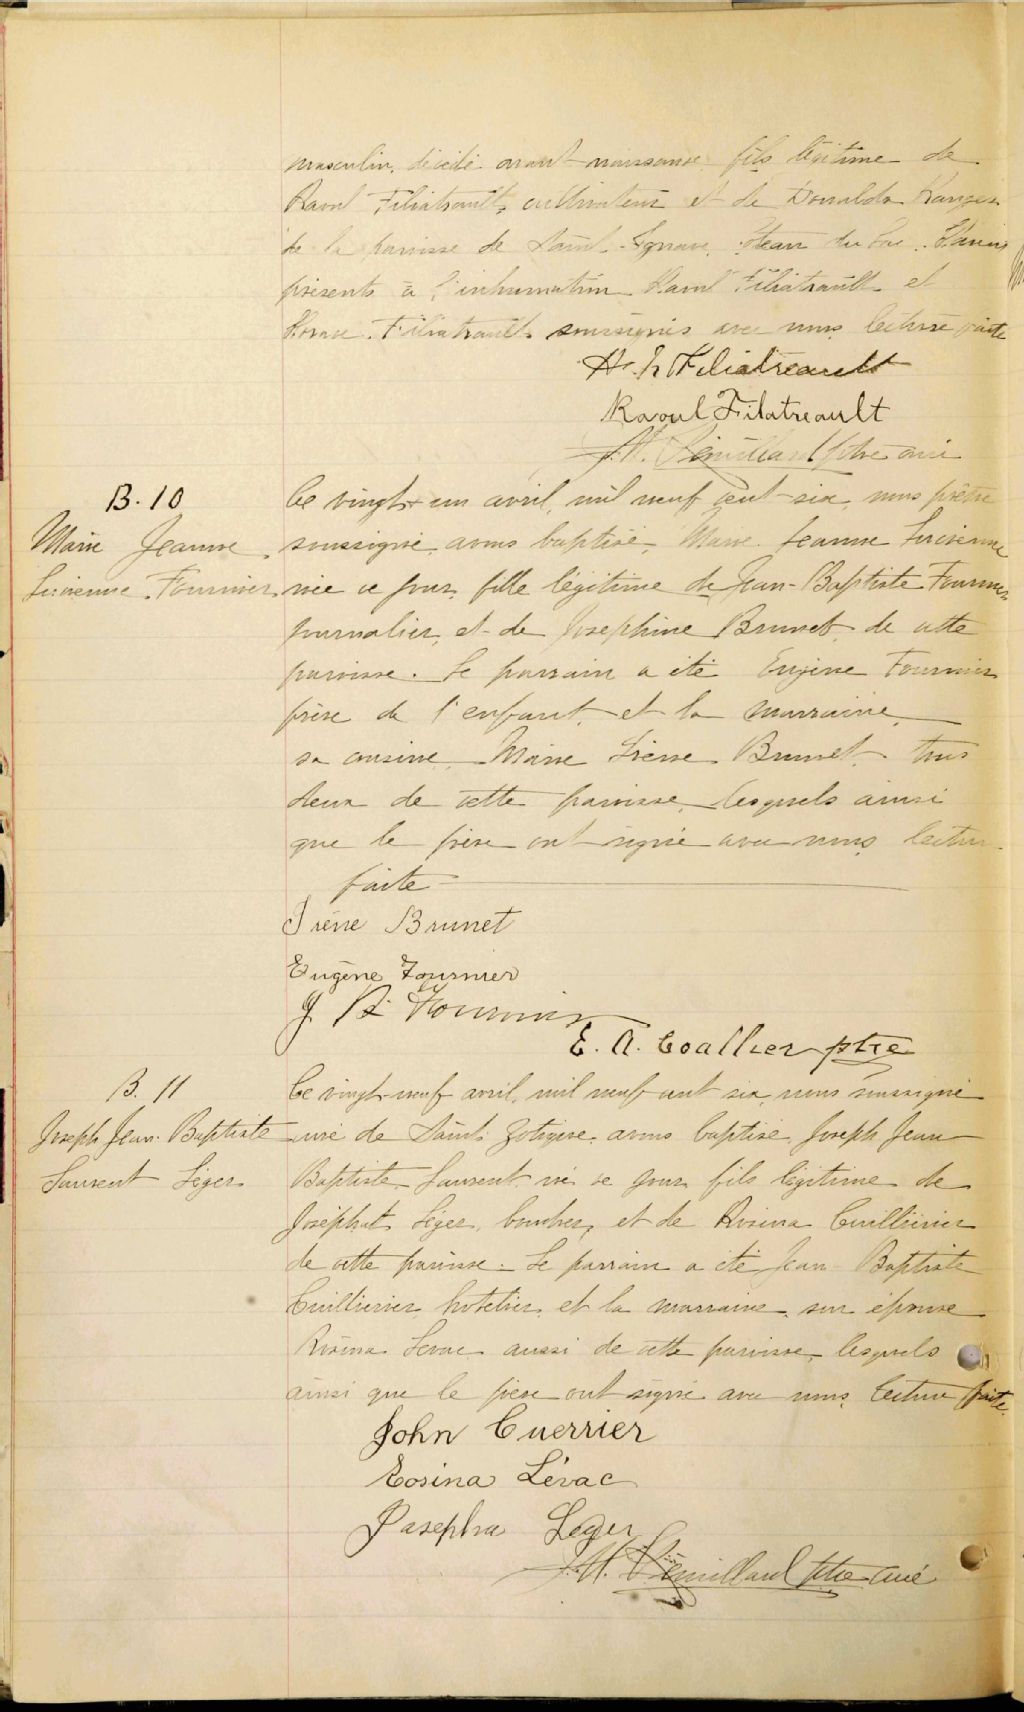 masculin, décédé avant naissance, fils légitime de
Raoul Filiatrault, cultivateur et de Donalda
de la paroisse de Saint-Ignace, Coteau du Lac. Etaient
présents à l'inhumation Raoul Filiatrault et
Filiatrault soussignés avec nous, lecture faite
H. L. Filiatreault
Raoul Filatreault
J. M. ptre curé
B. 10
Marie Jeanne
Lucienne Fournier
Ce vingt-un avril, mil neuf cent-six, nous prêtre
soussigné avons baptisé, Marie Jeanne Lucienne
née ce jour, fille légitime de Jean-Baptiste Fournier
journalier, et de Josephine Brunet, de cette
paroisse. Le parrain a été Eugène Fournier
frère de l'enfant, et la marraine
sa cousine, Marie Irène Brunet, tous
deux de cette paroisse, lesquels ainsi
que le père ont signé avec nous, lecture
faite
Irène Brunet
Eugène Fournier
J. Bt Fournier
E. A. Coallier ptre
B. 11
Joseph Jean-Baptiste
Laurent Léger
Ce vingt-neuf avril, mil neuf cent six, nous soussigné
curé de Saint Zotique, avons baptisé, Joseph Jean
Baptiste Laurent né ce jour, fils légitime de
Joséphat Léger, boucher, et de Rosina Cuillièrier
de cette paroisse. Le parrain a été Jean-Baptiste
Cuillièrier, hotelier, et la marraine, son épouse
Rosina Levac aussi de cette paroisse, lesquels
ainsi que le père ont signé avec nous, lecture faite.
John Cuerrier
Rosina Lévac
Josepha Leger
J. M. ptre curé